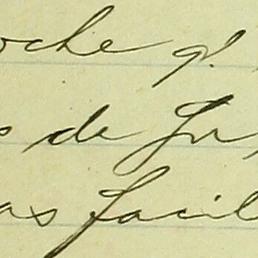 oche q!
s de Ju
as facil